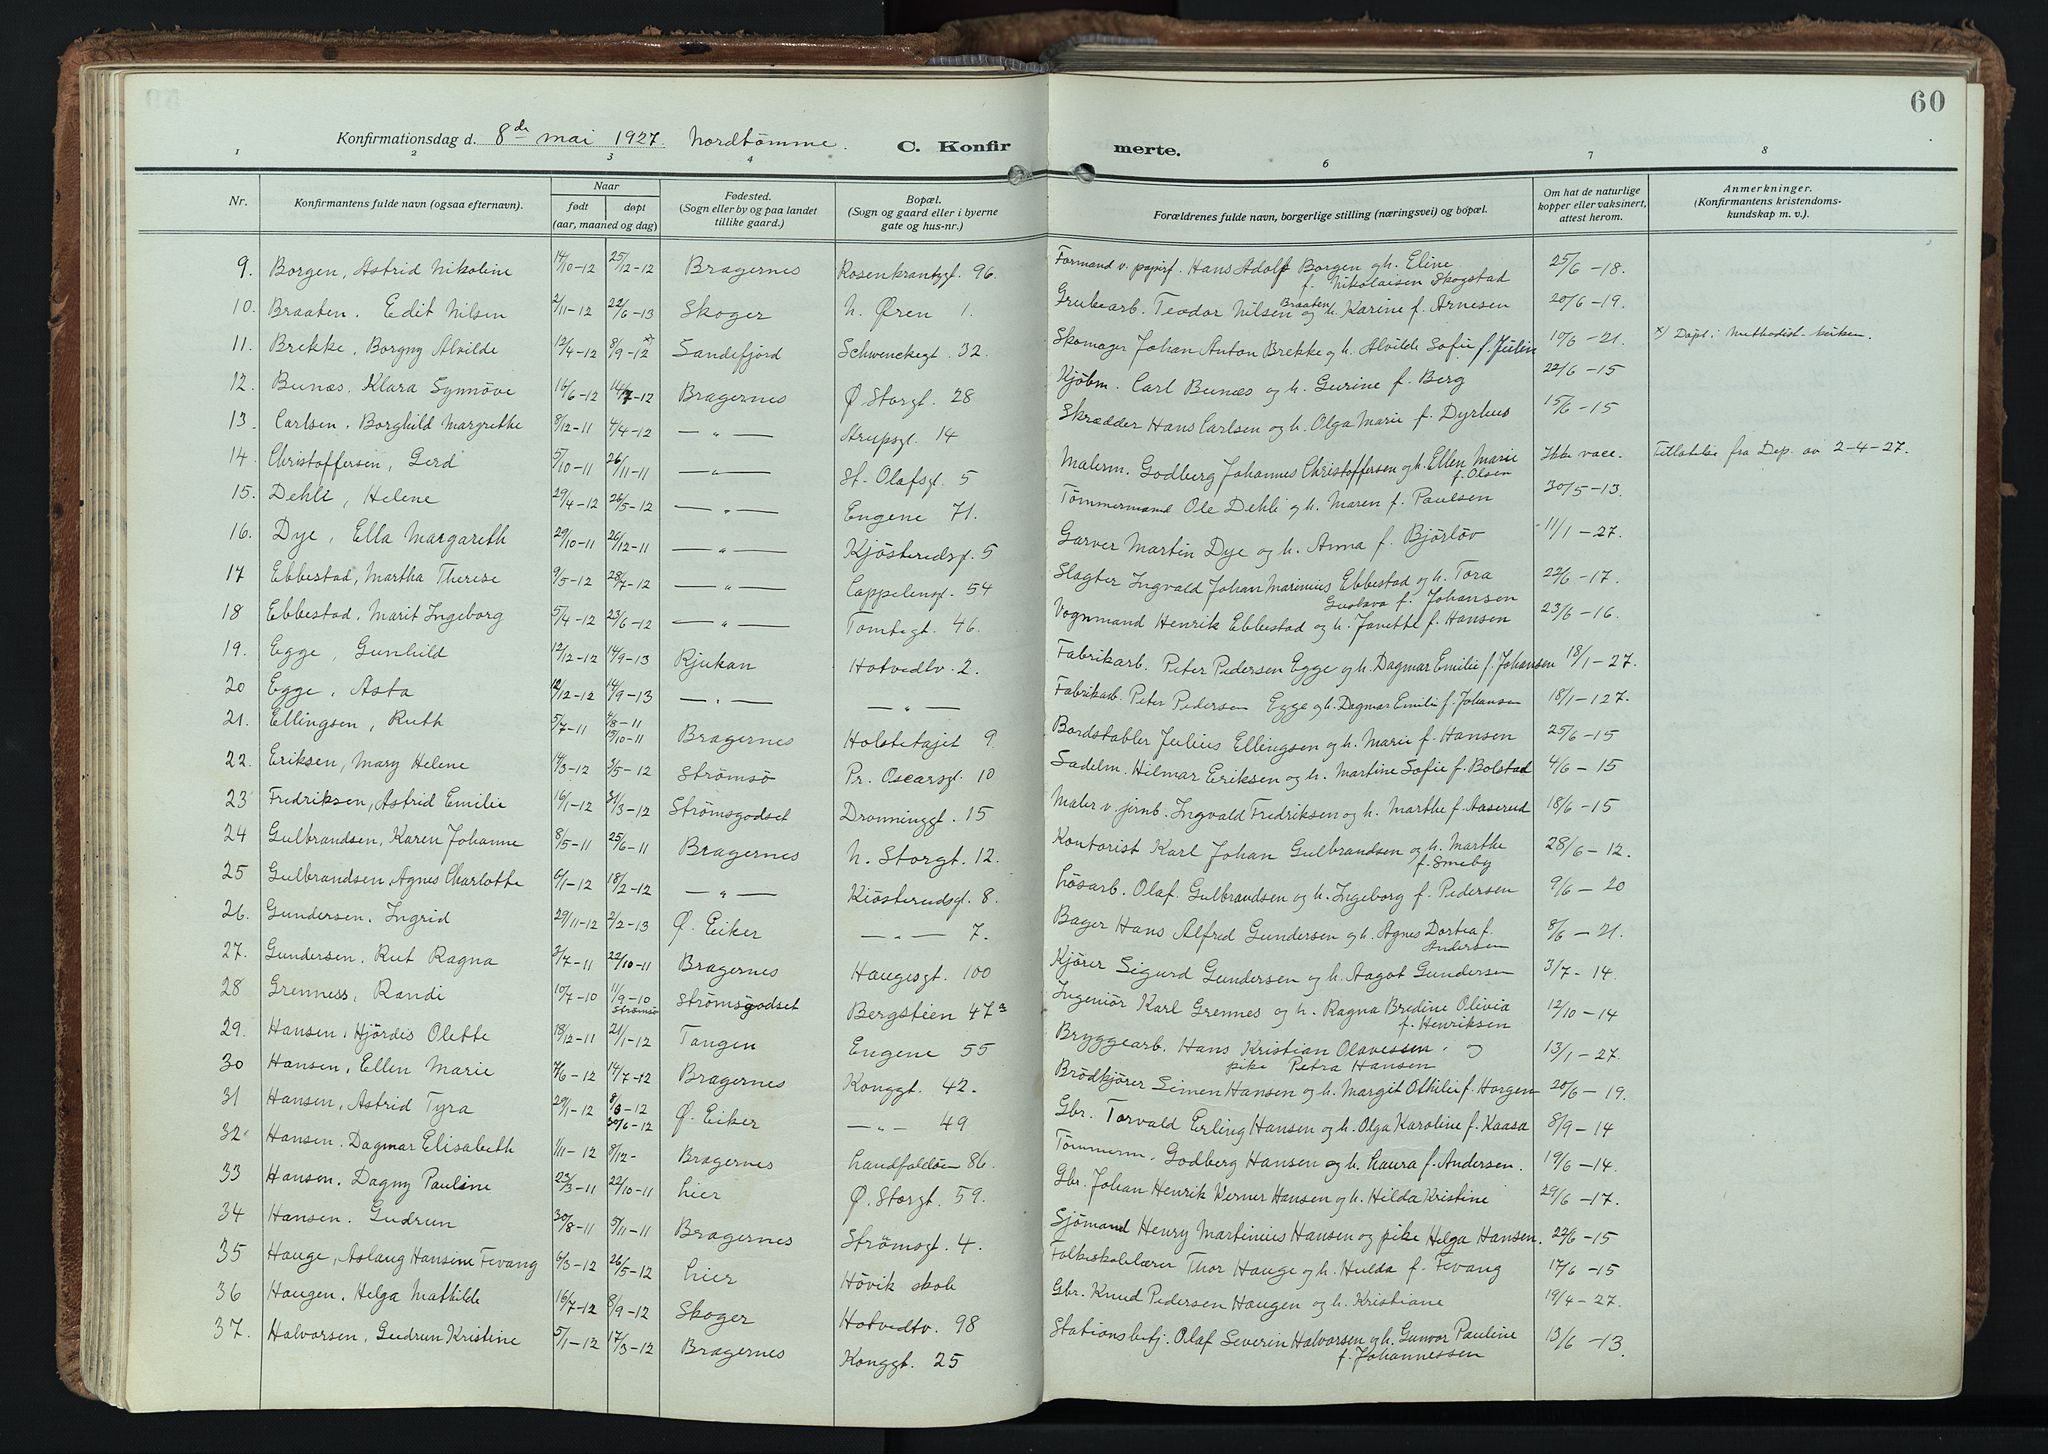 60
Konfirmationsdag d. 8de mai 1927. Nordtømme. C. Konfirmerte.
1 2 3 4 6 7 8
Nr. Konfirmantens fulde navn (ogsaa efternavn). Naar født døpt (aar, maaned og dag) Fødested. (Sogn eller by og paa landet tillike gaard.) Bopæl. (Sogn og gaard eller i byerne gate og hus-nr.) Forældrenes fulde navn, borgerlige stilling (næringsvei) og bopæl. Om hat de naturlige kopper eller vaksinert, attest herom. Anmerkninger. (Konfirmantens kristendomskundskap m. v.)
9. Borgen, Astrid Nikoline 14/10-12 25/12-12 Bragernes Rosenkrantzgt. 96. Formand v. papirf. Hans Adolf Borgen og h. Eline f. Nikolaisen Skogstad 25/6-18.
10. Braaten. Edit Nilsen 2/11-12 22/6-13 Skoger N. Øren 1. Grubearb. Teodor Nilsen Braaten og h. Karine f. Arnesen 20/6-19.
11. Brekke, Borgny Alvilde 12/4-12 8/9-12 x Sandefjord Schwenckegt. 32. Skomager Johan Anton Brekke og h. Alvilde Sofie f. Julin 10/6-21. x) Døpt i Methodist-kirken.
12. Bunæs. Klara Synnøve 16/6-12 14/7-12 Bragernes Ø. Storgt. 28 Kjøbm. Carl Bunæs og h. Gurine f. Berg 22/6-15
13. Carlsen. Borghild Margrethe 8/12-11 4/4-12 — „ — Strupsgt. 14 Skrædder Hans Carlsen og h. Olga Marie f. Dyrhus 15/6-15
14. Christoffersen, Gerd 5/10-11 26/11-11 — „ — St. Olafsgt. 5 Malerm. Godberg Johannes Christoffersen og h. Ellen Marie f. Olsen Ikke vacc. Tillatelse fra Dep. av 2-4-27.
15. Dehli, Helene 29/4-12 26/5-12 — „ — Engene 71. Tømmermand Ole Dehli og h. Maren f. Paulsen 30/5-13.
16. Dye, Ella Margareth 29/10-11 26/12-11 — „ — Kjøsterudsgt. 5 Garver Martin Dye og h. Anna f. Bjørløv 11/1-27.
17 Ebbestad, Martha Therese 9/5-12 28/7-12 — „ — Cappelensgt. 54 Slagter Ingvald Johan Marinius Ebbestad og h. Tora Gustava f. Johansen 22/6-17.
18 Ebbestad, Marit Ingeborg 5/4-12 23/6-12 — „ — Tomtegt. 46. Vognmand Henrik Ebbestad og h. Janette f. Hansen 23/6-16.
19. Egge, Gunhild 12/12-12 14/9-13 Rjukan Hotvedtv. 2. Fabrikarb. Peter Pedersen Egge og h. Dagmar Emilie f. Johansen 18/1-27.
20 Egge, Asta 12/12-12 14/9-13 — „ — — „ — Fabrikarb. Peter Pedersen Egge og h. Dagmar Emilie f. Johansen 18/1-127.
21. Ellingsen, Ruth 5/7-11 4/8-11 15/10-11 Bragernes Holstetajet 9. Bordstabler Julius Ellingsen og h. Marie f. Hansen 25/6-15
22. Eriksen, Mary Helene 14/3-12 3/5-12 Strømsø Pr. Oscarsgt. 10 Sadelm. Hilmar Eriksen og h. Martine Sofie f. Bolstad 4/6-15
23 Fredriksen, Astrid Emilie 16/1-12 31/3-12 Strømsgodset Dronninggt. 15 Maler v. jernb. Ingvald Fredriksen og h. Marthe f. Aaserud 18/6-15
24 Gulbrandsen, Karen Johanne 8/5-11 25/6-11 Bragernes N. Storgt. 12. Kontorist Karl Johan Gulbrandsen og h. Marthe f. Smeby 28/6-12.
25 Gulbrandsen, Agnes Charlotte 6/1-12 18/2-12 — „ — Kiøsterudsgt. 8. Løsarb. Olaf. Gulbrandsen og h. Ingeborg f. Pedersen 9/6-20
26. Gundersen. Ingrid 29/11-12 2/2-13 Ø. Eiker — „ — 7. Bager Hans Alfred Gundersen og h. Agnes Dortea f. Andersen 8/6-21.
27. Gundersen. Rut Ragna 3/7-11 22/10-11 Bragernes Haugesgt. 100 Kjører Sigurd Gundersen og h. Aagot Gundersen 3/7-14.
28 Grenness, Randi 10/7-10 11/9-10 Strømsø Strømsgodset Bergstien 47a Ingeniør Karl Grennes og h. Ragna Bredine Olivia f. Henriksen 12/10-14
29. Hansen, Hjørdis Olette 18/12-11 21/1-12 Tangen Engene 55 Bryggearb. Hans Kristian Olavessen. og pike Petra Hansen 13/1-27.
30 Hansen, Ellen Marie 7/6-12 14/7-12 Bragernes Konggt. 42. Brødkjører Simen Hansen og h. Margit Othilie f. Horgen 20/6-19.
31 Hansen, Astrid Tyra 29/1-12 8/3-12 30/6-12 Ø. Eiker — „ — 49 Gbr. Torvald Erling Hansen og h. Olga Karoline f. Kaasa 8/9-14
32. Hansen. Dagmar Elisabeth 1/11-12 8/12- Bragernes Landfaldøen 86. Tømmerm. Godberg Hansen og h. Laura f. Andersen. 19/6-14.
33 Hansen. Dagny Pauline 23/3-11 22/10-11 Lier Ø. Storgt. 59. Gbr. Johan Henrik Werner Hansen og h. Hilda Kristine 29/6-17.
34 Hansen. Gudrun 30/8-11 5/11-11 Bragernes Strømsgt. 4. Sjømand Henry Martinius Hansen og pike Helga Hansen. 22/6-15
35 Hauge, Aslaug Hansine Fevang 6/3-12 26/5-12 Lier Høvik skole Folkeskolelærer Thor Hauge og h. Hulda f. Fevang 17/6-15
36 Haugen. Helga Mathilde 16/7-12 8/9-12 Skoger Hotvedtv. 98 Gbr. Knud Pedersen Haugen og h. Kristiane 19/4-27.
37. Halvorsen, Gudrun Kristine 5/1-12 17/3-12 Bragernes Konggt. 25 Stationsbetj. Olaf Severin Halvorsen og h. Gunvor Pauline f. Johannessen 13/6-13.